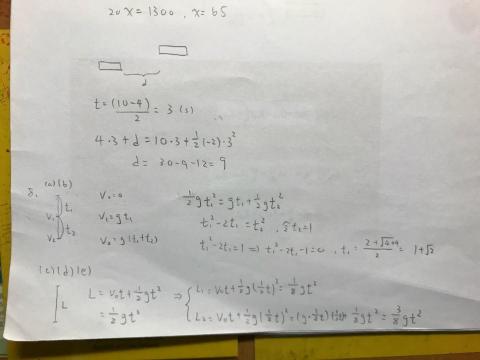 20x=1300, x=65
d
t=(10-4)/2=3(s)
4·3+d=10·3+1/2(-2)·3²
d=30-9-12=9
8. (a)(b)
t₁ V₁ t₂ V₂
V₀=0
V₁=gt₁
V₂=g(t₁+t₂)
1/2gt₁²=gt₁+1/2gt₂²
t₁²-2t₁=t₂², t₂=1
t₁²-2t₁=1 => t₁²-2t₁-1=0, t₁=(2+√4+4)/2=1+√2
(c)(d)(e)
L L=V₀t+1/2gt² => { L₁=V₀t+1/2g(1/2t)²=1/8gt²
=1/2gt² L₂=V₀t+1/2g(1/2t)²=(g·1/2t) 1/8gt²=3/8gt²